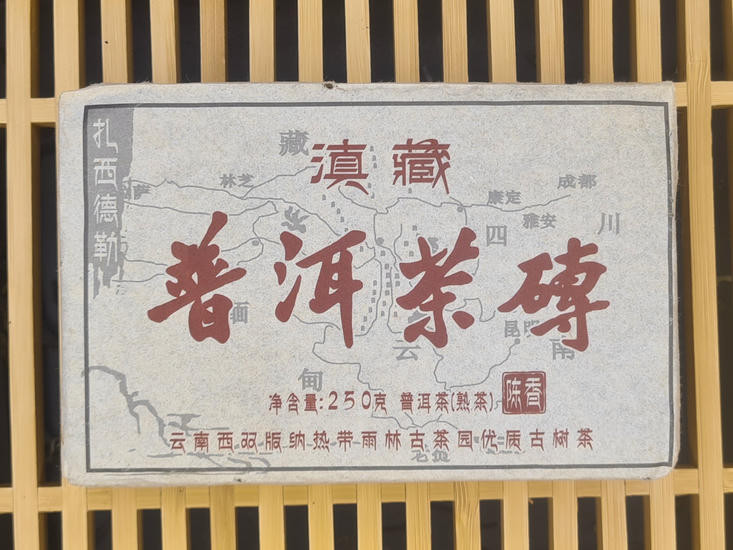 扎西德勒
滇藏
普洱茶磚
净含量:250克 普洱茶(熟茶)
陈香
云南西双版纳热带雨林古茶园优质古树茶
藏
林芝
康定
成都
雅安
四
川
缅
甸
云
南